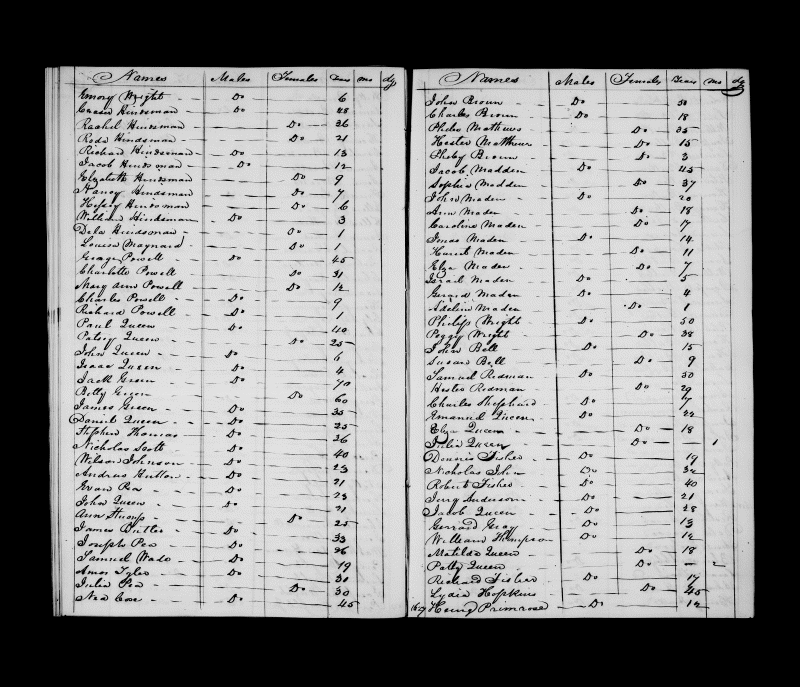 Names Males Females Years mo dy
Emory Wright Do 6
Caesar Hindsman Do 48
Rachel Hindsman Do 36
Roda Hindsman Do 21
Richard Hindsman Do 13
Jacob Hindsman Do 12
Elizabeth Hindsman Do 9
Nancy Hindsman Do 7
Hessy Hindsman Do 6
William Hindsman Do 3
Dela Hindsman Do 1
Louisa Maynard Do 1
George Powell Do 45
Charlotte Powell Do 31
Mary Ann Powell Do 12
Charles Powell Do 9
Richard Powell Do 1
Paul Queen Do 40
Patsey Queen Do 25
John Queen Do 6
Isaac Queen Do 4
Jack Green Do 70
Betty Green Do 60
James Green Do 35
Daniel Queen Do 25
Stephen Thomas Do 36
Nicholas Scott Do 40
Wilson Johnson Do 23
Andrew Hutton Do 21
Evan Pea Do 23
John Queen Do 21
Ann Stump Do 25
James Butler Do 33
Joseph Pea Do 26
Samuel Wade Do 19
Amos Tyler Do 30
Julia Pea Do 30
Ned Cose Do 45
Names Males Females Years mo dy
John Brown Do 50
Charles Brown Do 18
Phebe Mathews Do 35
Hester Matthews Do 15
Pheby Brown Do 3
Jacob Madden Do 45
Sophia Madden Do 37
John Maden Do 20
Ann Maden Do 18
Caroline Maden Do 17
Maden Do 14
Harriet Maden Do 11
Elza Maden Do 7
Israel Maden Do 5
Gerard Maden Do 4
Adeline Maden Do 1
Philip Wright Do 50
Peggy Wright Do 38
John Bell Do 15
Susan Bell Do 9
Samuel Redman Do 30
Hester Redman Do 29
Charles Shephard Do 17
Emanuel Queen Do 22
Elza Queen Do 18
Julia Queen Do 1
Dennis Fisher Do 19
Nicholas Do 32
Robert Fisher Do 40
Jerry Anderson Do 21
Jacob Queen Do 28
Gerrard Gray Do 13
William Thompson Do 12
Matilda Queen Do 18
Patty Queen Do 2
Richard Fisher Do 17
Lydia Hopkins Do 45
Henry Primrose Do 12